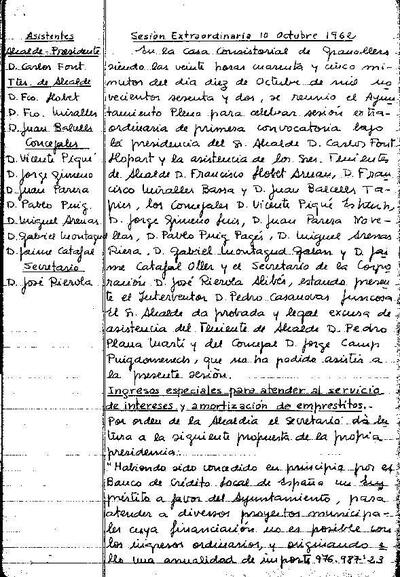 Asistentes
Alcalde-Presidente
D. Carlos Font
Ttes. de Alcalde
D. Fco. Llobet
D. Fco. Miralles
D. Juan Balcells
Concejales
D. Vicente Piqué
D. Jorge Gimeno
D. Juan Parera
D. Pablo Puig.
D. Miguel Arenas
D. Gabriel Montagud
D. Jaime Catafal
Secretario
D. José Rierola
Sesión Extraordinaria 10 Octubre 1962
En la Casa Consistorial de Granollers
siendo las veinte horas cuarenta y cinco mi-
nutos del dia diez de Octubre de mil no
vecientos sesenta y dos, se reunió el Ayun
tamiento Pleno para celebrar sesión extra-
ordinaria de primera convocatoria bajo
la presidencia del Sr. Alcalde D. Carlos Font
Llopart y la asistencia de los Sres. Tenientes
de Alcalde D. Francisco Llobet Arnan, D. Fran
cisco Miralles Bassa y D. Juan Balcells Ta-
pies, los Concejales D. Vicente Piqué
D. Jorge Gimeno D. Juan Parera Nove-
llas, D. Pablo Puig Pagés, D. Miguel Arenas
Riera, D. Gabriel Montagud Galan y D. Jai
me Catafal Oller y el Secretario de la Corpo
ración D. José Rierola Alibés, estando presen
te el Interventor D. Pedro Casanovas
El Sr. Alcalde da probada y legal excusa de
asistencia del Teniente de Alcalde D. Pedro
Plana Martí y del Concejal D. Jorge Camp
Puigdomenech, que no ha podido asistir a
la presente sesión.
Ingresos especiales para atender al servicio
de intereses y amortización de emprestitos.-
Por orden de la Alcaldia el Secretario dá lec
tura a la siguiente propuesta de la propia
presidencia:
"Habiendo sido concedido en principio por el
Banco de Crédito Local de España un em
préstito a favor del Ayuntamiento, para
atender a diversos proyectos municipa-
les cuya financiación no es posible con
los ingresos ordinarios, y originando e
llo una anualidad de importe 976.987'23